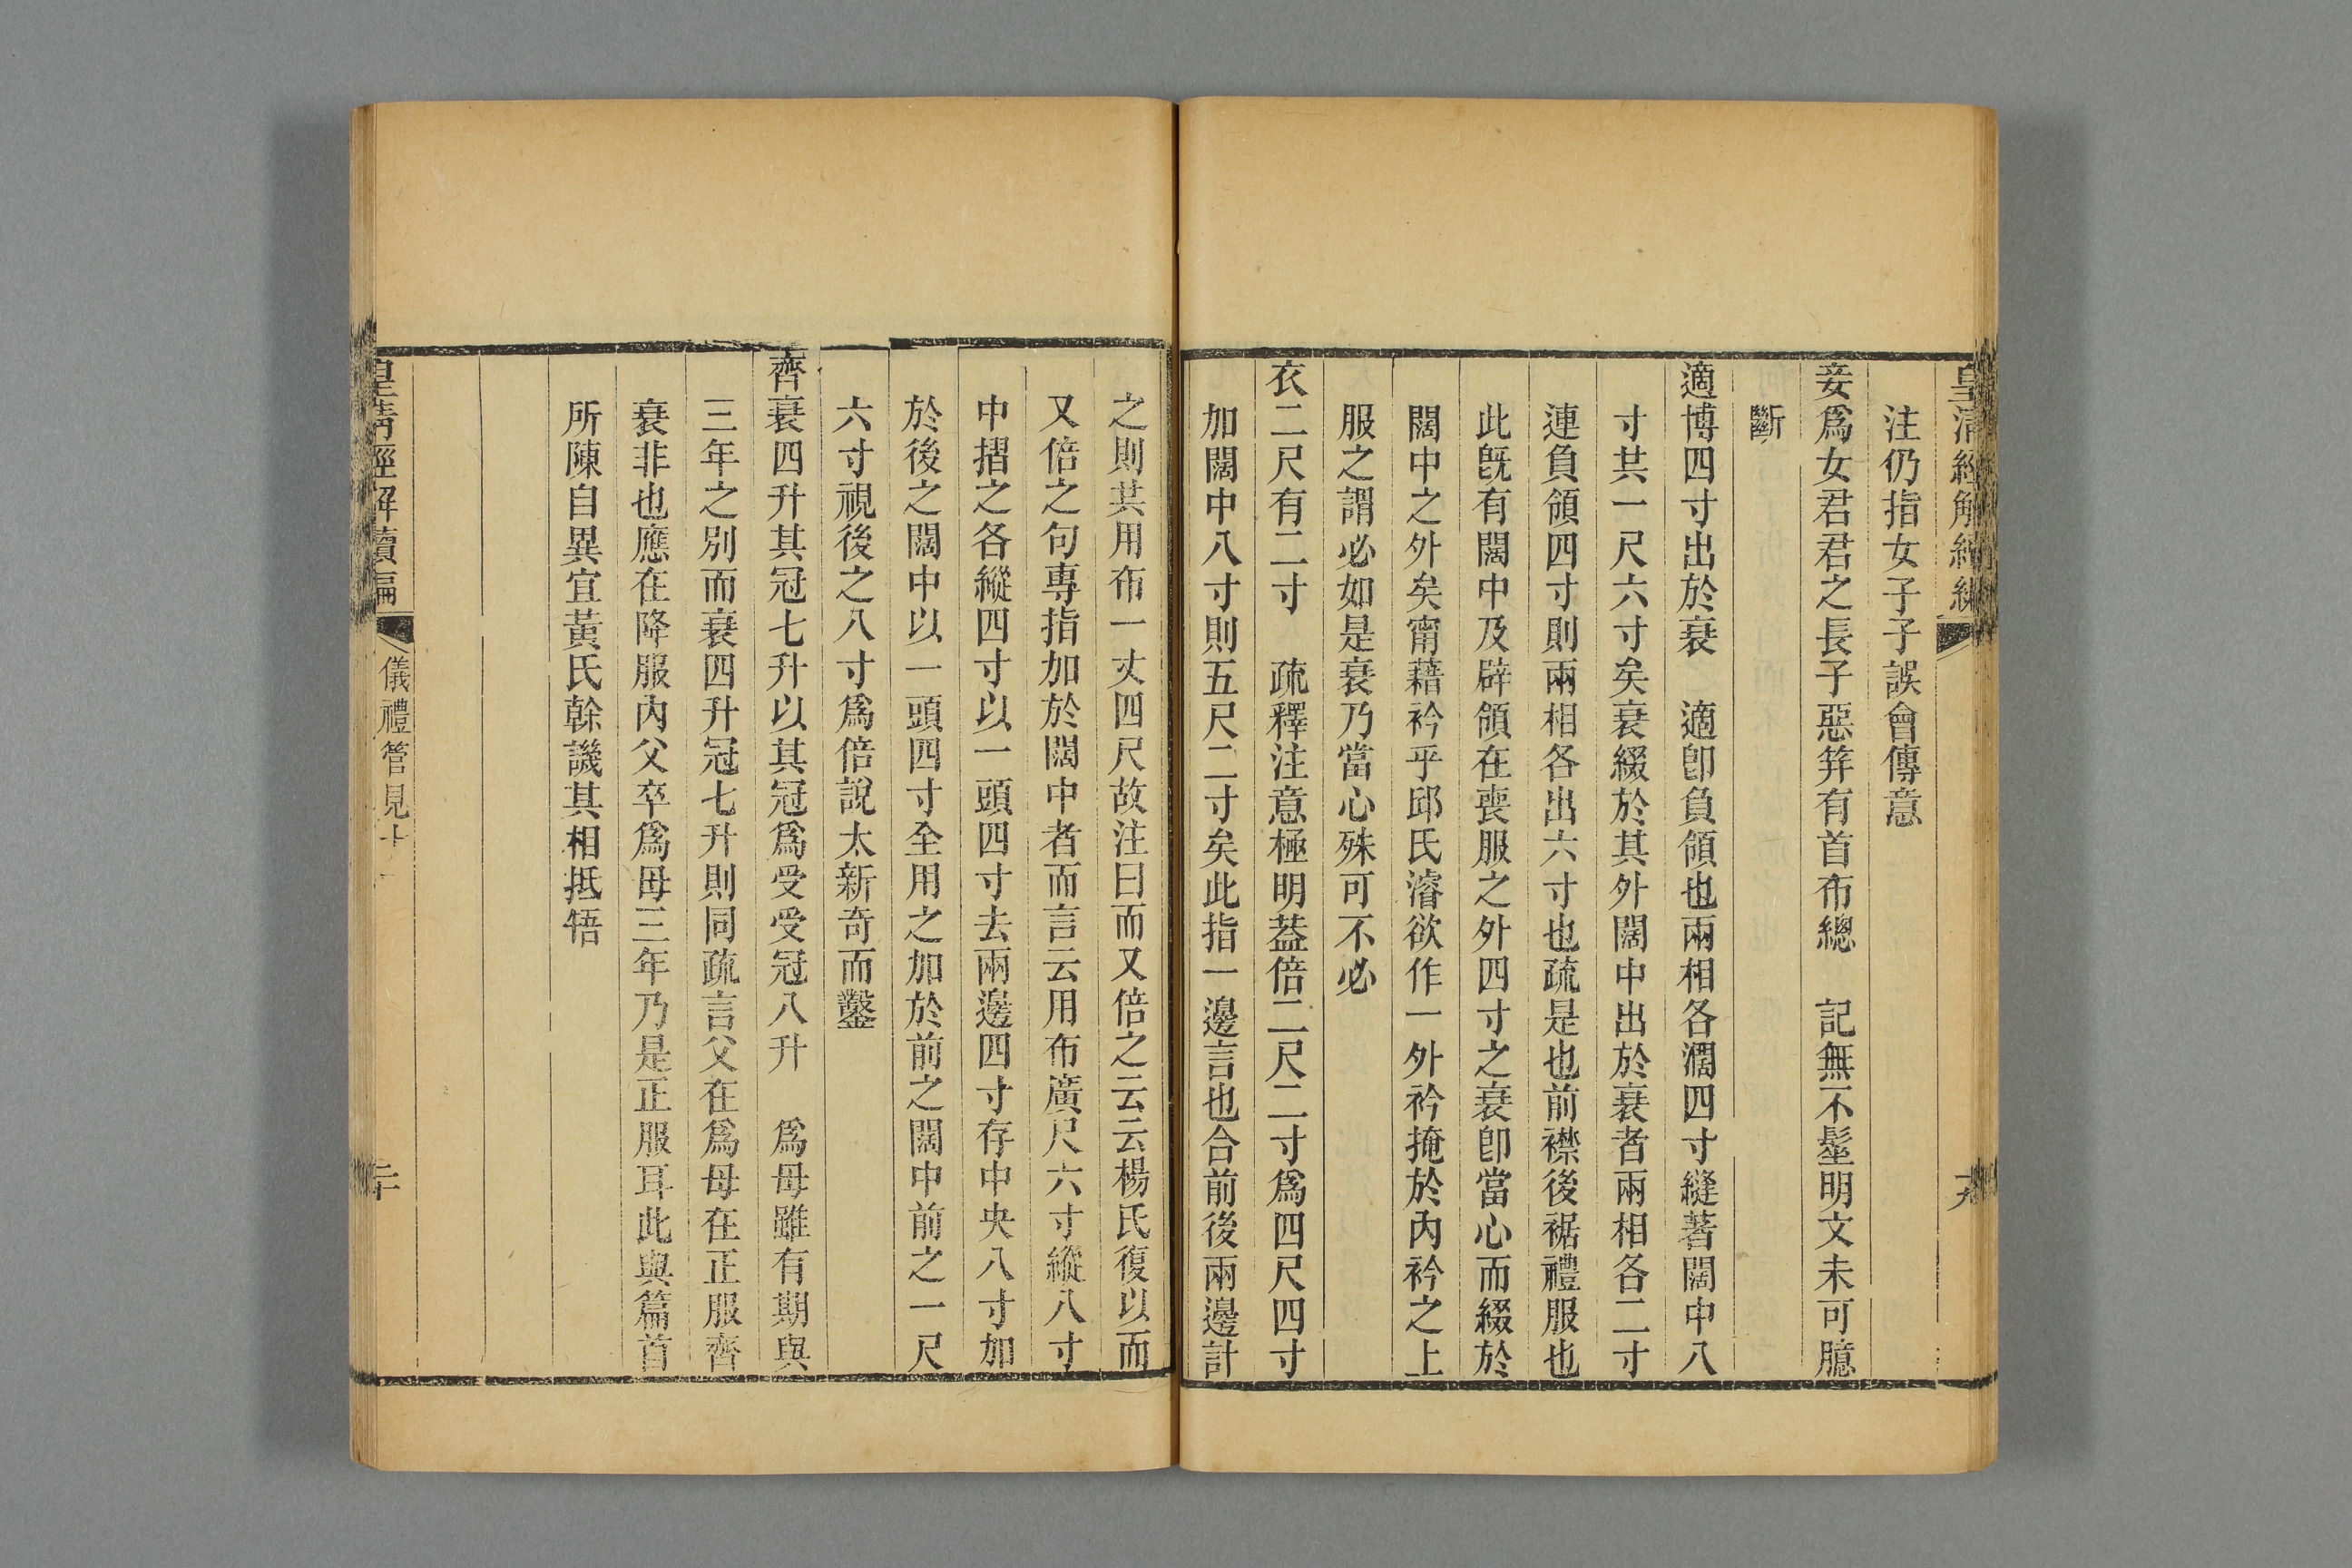 皇清經解續編
十九
注仍指女子子誤會傳意
妾爲女君君之長子惡筓有首布總　記無不髽明文未可臆
斷
適博四寸出於衰　適卽負領也兩相各濶四寸縫著闊中八
寸共一尺六寸矣衰綴於其外闊中出於衰者兩相各二寸
連負領四寸則兩相各出六寸也疏是也前襟後裾禮服也
此旣有闊中及辟領在喪服之外四寸之衰卽當心而綴於
闊中之外矣甯藉衿乎邱氏濬欲作一外衿掩於內衿之上
服之謂必如是衰乃當心殊可不必
衣二尺有二寸　疏釋注意極明葢倍二尺二寸爲四尺四寸
加闊中八寸則五尺二寸矣此指一邊言也合前後兩邊計
之則共用布一丈四尺故注曰而又倍之云云楊氏復以而
又倍之句專指加於闊中者而言云用布廣尺六寸縱八寸
中摺之各縱四寸以一頭四寸去兩邊四寸存中央八寸加
於後之闊中以一頭四寸全用之加於前之闊中前之一尺
六寸視後之八寸爲倍說太新奇而鑿
齊衰四升其冠七升以其冠爲受受冠八升　爲母雖有期與
三年之別而衰四升冠七升則同疏言父在爲母在正服齊
衰非也應在降服內父卒爲母三年乃是正服耳此與篇首
所陳自異宜黃氏榦譏其相抵牾
皇淸經解續編
儀禮管見十一
二十